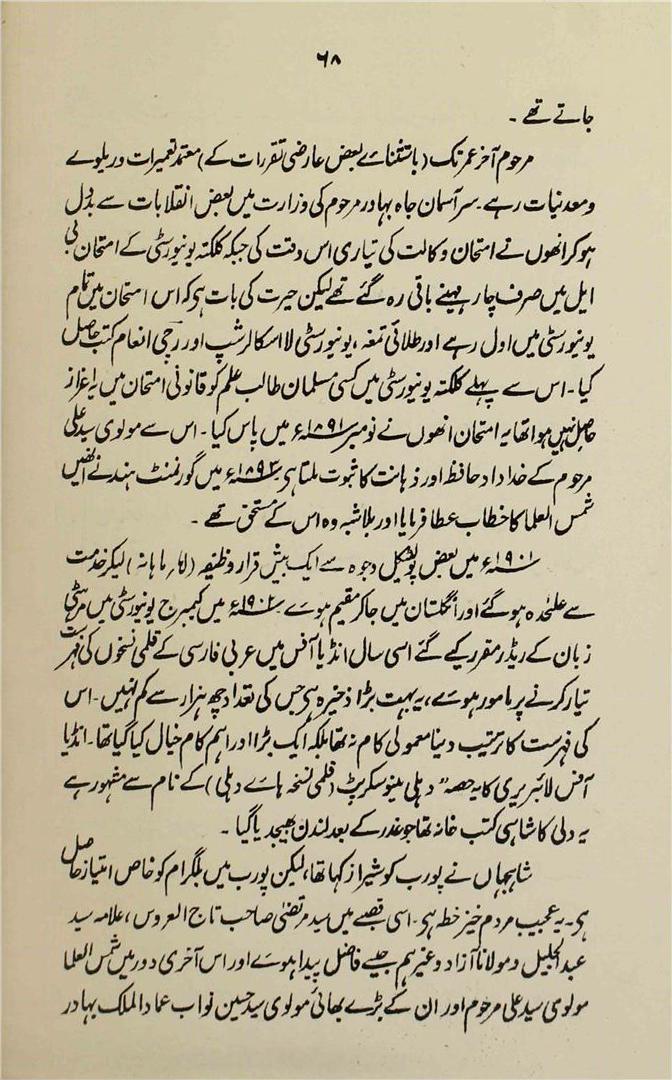 ۶۸
جاتے تھے ۔
مرحوم آخر عمر تک (باستثنائے بعض عارضی تقررات کے) معتمد تعمیرات و ریلوے
و معدنیات رہے۔ سر آسمان جاہ بہادر مرحوم کی وزارت میں بعض انقلابات سے بددل
ہوکر انھوں نے امتحان وکالت کی تیاری اس وقت کی جبکہ کلکتہ یونیورسٹی کے امتحان بی
ایل میں صرف چار مہینے باقی رہ گئے تھے لیکن حیرت کی بات ہی کہ اس امتحان میں تمام
یونیورسٹی میں اول رہے اور طلائی تمغہ ، یونیورسٹی لا اسکالرشپ اور رجی انعام کتب حاصل
کیا۔ اس سے پہلے کلکتہ یونیورسٹی میں کسی مسلمان طالب علم کو قانونی امتحان میں یہ اعزاز
حاصل نہیں ہوا تھا یہ امتحان انھوں نے نومبر ۱۸۹۱ء میں پاس کیا۔ اس سے مولوی سید علی
مرحوم کے خداداد حافظہ اور ذہانت کا ثبوت ملتا ہی ۱۸۹۳ء میں گورنمنٹ ہند نے انھیں
شمس العلما کا خطاب عطا فرمایا اور بلاشبہ وہ اس کے مستحق تھے ۔
۱۹۰۱ء میں بعض پولٹیکل وجوہ سے ایک بیش قرار وظیفہ ( ماہانہ ) لیکر خدمت
سے علٰحدہ ہو گئے اور انگلستان میں جاکر مقیم ہوے ۱۹۰۲ء میں کیمبرج یونیورسٹی میں مرہٹی
زبان کے ریڈر مقرر کیے گئے اسی سال انڈیا آفس میں عربی فارسی کے قلمی نسخوں کی فہرست
تیار کرنے پر مامور ہوے، یہ بہت بڑا ذخیرہ ہی جس کی تعداد چھ ہزار سے کم نہیں۔ اس
کی فہرست کا ترتیب دینا معمولی کام نہ تھا بلکہ ایک بڑا اور اہم کام خیال کیا گیا تھا۔ انڈیا
آفس لائبریری کا یہ حصہ " دہلی مینوسکرپٹ (قلمی نسخہ ہاے دہلی) کے نام سے مشہور ہے
یہ دلی کا شاہی کتب خانہ تھا جو غدر کے بعد لندن بھیجدیا گیا ۔
شاہجہاں نے پورب کو شیراز کہا تھا، لیکن پورب میں بلگرام کو خاص امتیاز حاصل
ہی۔ یہ عجیب مردم خیز خطہ ہی۔ اسی قصبے میں سید مرتضیٰ صاحب تاج العروس ، علامہ سید
عبدالجلیل و مولانا آزاد وغیرہم جیسے فاضل پیدا ہوے اور اس آخری دور میں شمس العلما
مولوی سید علی مرحوم اور ان کے بڑے بھائی مولوی سید حسین نواب عماد الملک بہادر